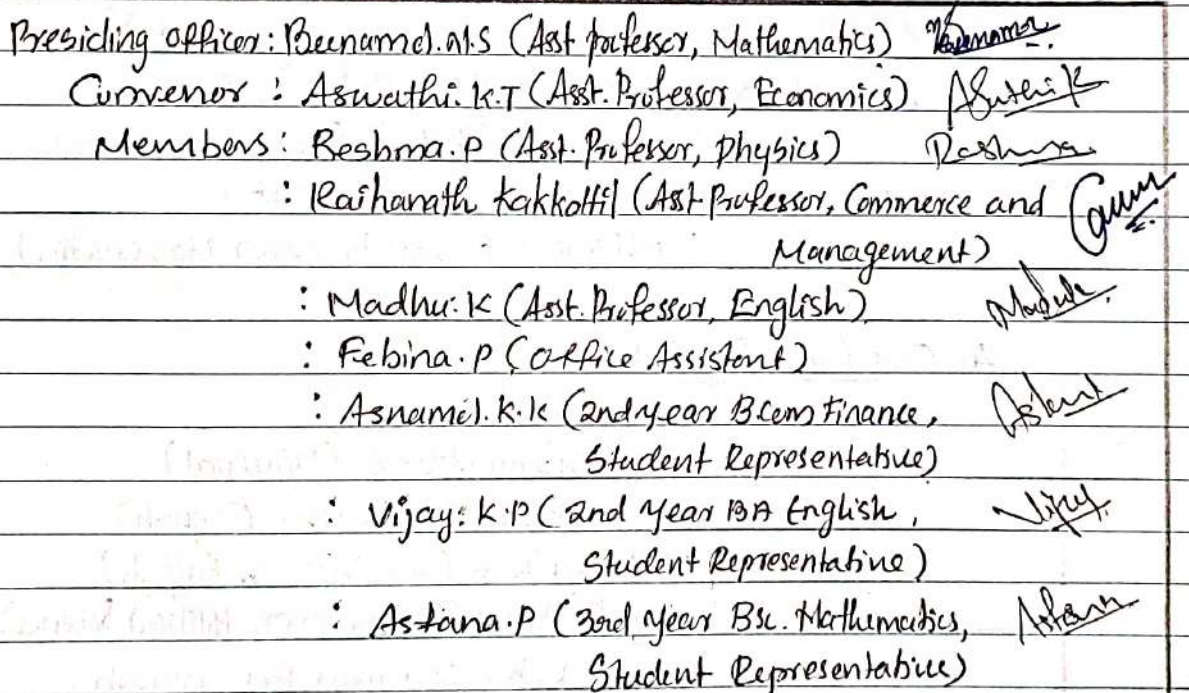 Presiding officer: Beenamol.M.S (Asst professor, Mathematics)
Convenor : Aswathi.K.T (Asst. Professor, Economics) Aswathi K
Members: Reshma.P (Asst. Professor, physics) Reshma
: Raihanath Kakkottil (Asst Professor, Commerce and
Management)
: Madhu.K (Asst. Professor, English)
: Febina.P (Office Assistant)
: Asnamol.K.K (2nd year B.com Finance,
Student Representative)
: Vijay.K.P (2nd year BA English, Vijay
Student Representative)
: Astana.P (3rd year Bsc. Mathematics,
Student Representative)